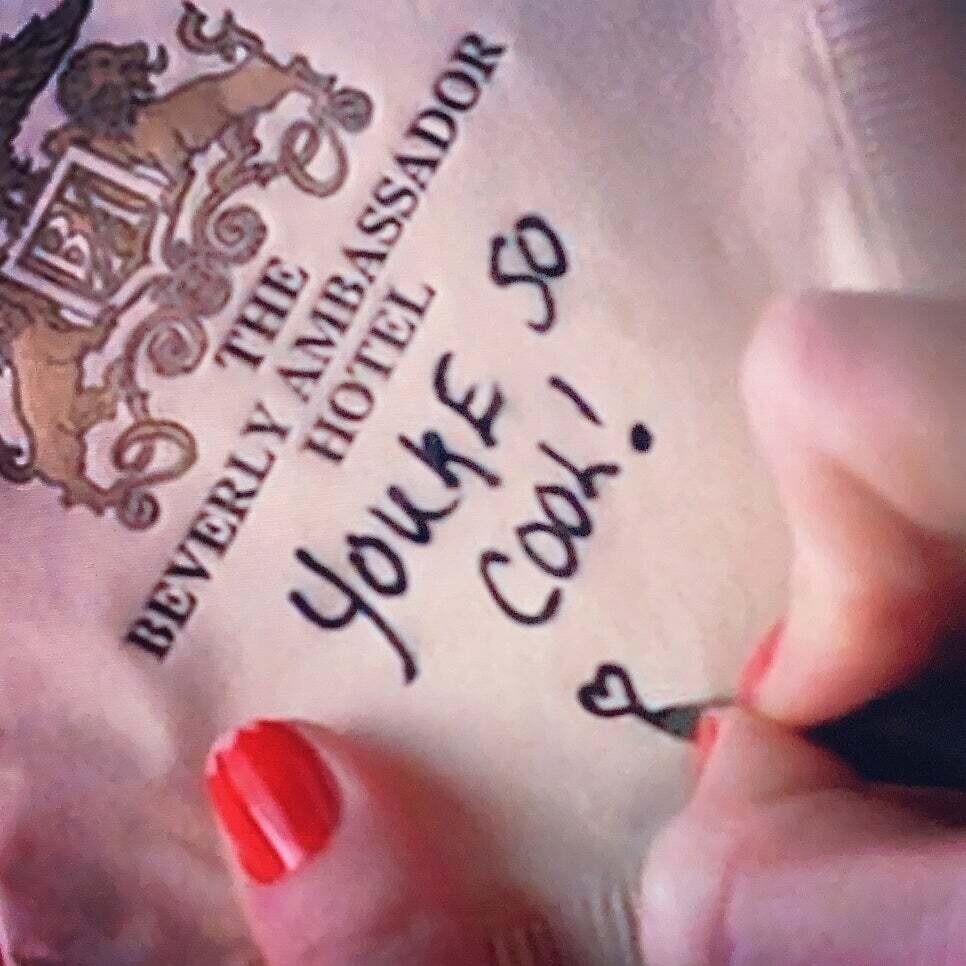 BA
THE
BEVERLY AMBASSADOR
HOTEL
YOU'RE SO
COOL!